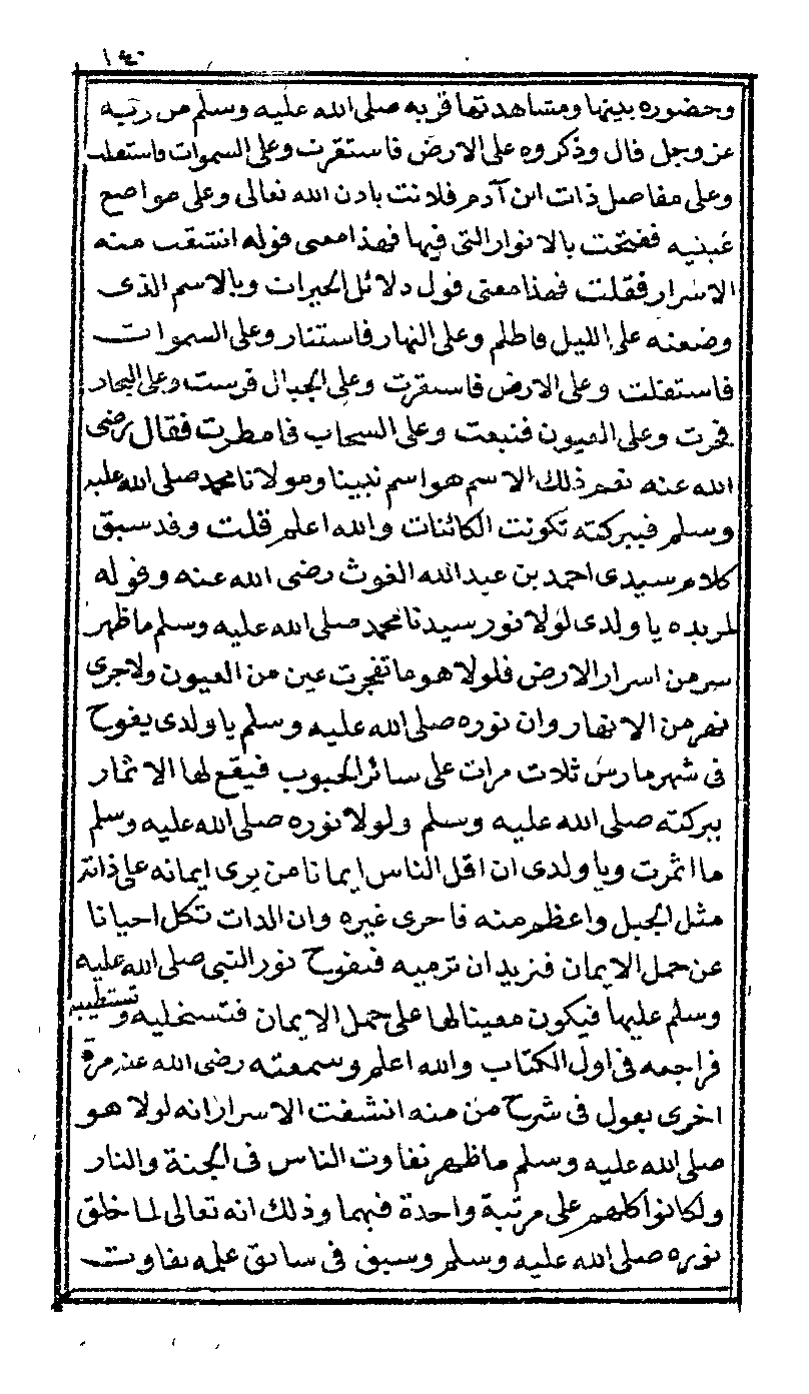 ١٤٠
وحضوره بينها ومشاهدتها قربه صلى الله عليه وسلم من ربه
عز وجل قال وذكروه على الارض فاستقرت وعلى السموات فاستقلت
وعلى مفاصل ذات ابن آدم فلانت باذن الله تعالى وعلى مواضع
عينيه ففتحت بالانوار التى فيها فهذا معنى قوله انشقت منه
الاسرار فقلت فهذا معنى قول دلائل الخيرات وبالاسم الذى
وضعته على الليل فاظلم وعلى النهار فاستنار وعلى السموات
فاستقلت وعلى الارض فاستقرت وعلى الجبال فرست وعلى البحار
فجرت وعلى العيون فنبعت وعلى السحاب فامطرت فقال رضى
الله عنه نعم ذلك الاسم هو اسم نبينا ومولانا محمد صلى الله عليه
وسلم فببركته تكونت الكائنات والله اعلم قلت وقد سبق
كلام سيدى احمد بن عبد الله الغوث رضى الله عنه وقوله
لمريده يا ولدى لولا نور سيدنا محمد صلى الله عليه وسلم ما ظهر
سر من اسرار الارض فلولا هو ما تفجرت عين من العيون ولا جرى
نهر من الانهار وان نوره صلى الله عليه وسلم يا ولدى يفوح
فى شهر مارس ثلاث مرات على سائر الحبوب فيقع لها الاثمار
ببركته صلى الله عليه وسلم ولولا نوره صلى الله عليه وسلم
ما اثمرت ويا ولدى ان اقل الناس ايمانا من يرى ايمانه على ذاته
مثل الجبل واعظم منه فاحرى غيره وان الذات تكل احيانا
عن حمل الايمان فتريد ان ترميه فيفوح نور النبى صلى الله عليه
وسلم عليها فيكون معينا لها على حمل الايمان فتستحليه وتستطيبه
فراجعه فى اول الكتاب والله اعلم وسمعته رضى الله عنه مرة
اخرى يقول فى شرح من منه انشقت الاسرار انه لولا هو
صلى الله عليه وسلم ما ظهر تفاوت الناس فى الجنة والنار
ولكانوا كلهم على مرتبة واحدة فيهما وذلك انه تعالى لما خلق
نوره صلى الله عليه وسلم وسبق فى سابق علمه تفاوت